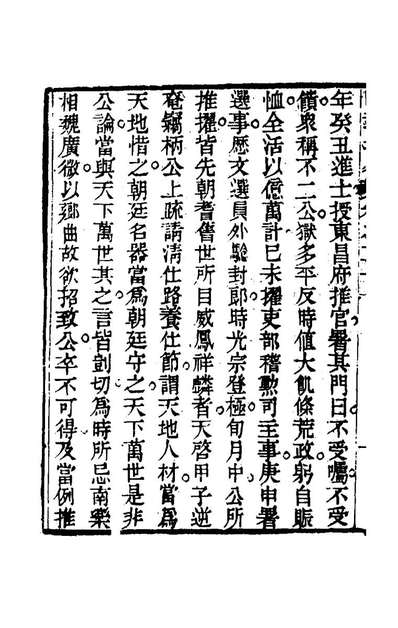 年癸丑進士授東昌府推官署其門曰不受囑不受
饋衆稱不二公獄多平反時值大飢條荒政躬自賑
恤全活以億萬計已未擢吏部稽勲司主事庚申署
選事歷文選員外驗封郎時光宗登極旬月中公所
推擢皆先朝耆舊世所目威鳳祥麟者天啓甲子逆
奄竊柄公上疏請淸仕路養仕節謂天地人材當爲
天地惜之朝廷名器當爲朝廷守之天下萬世是非
公論當與天下萬世共之言皆剴切爲時所忌南樂
相魏廣微以鄉曲故欲招致公卒不可得及當例推